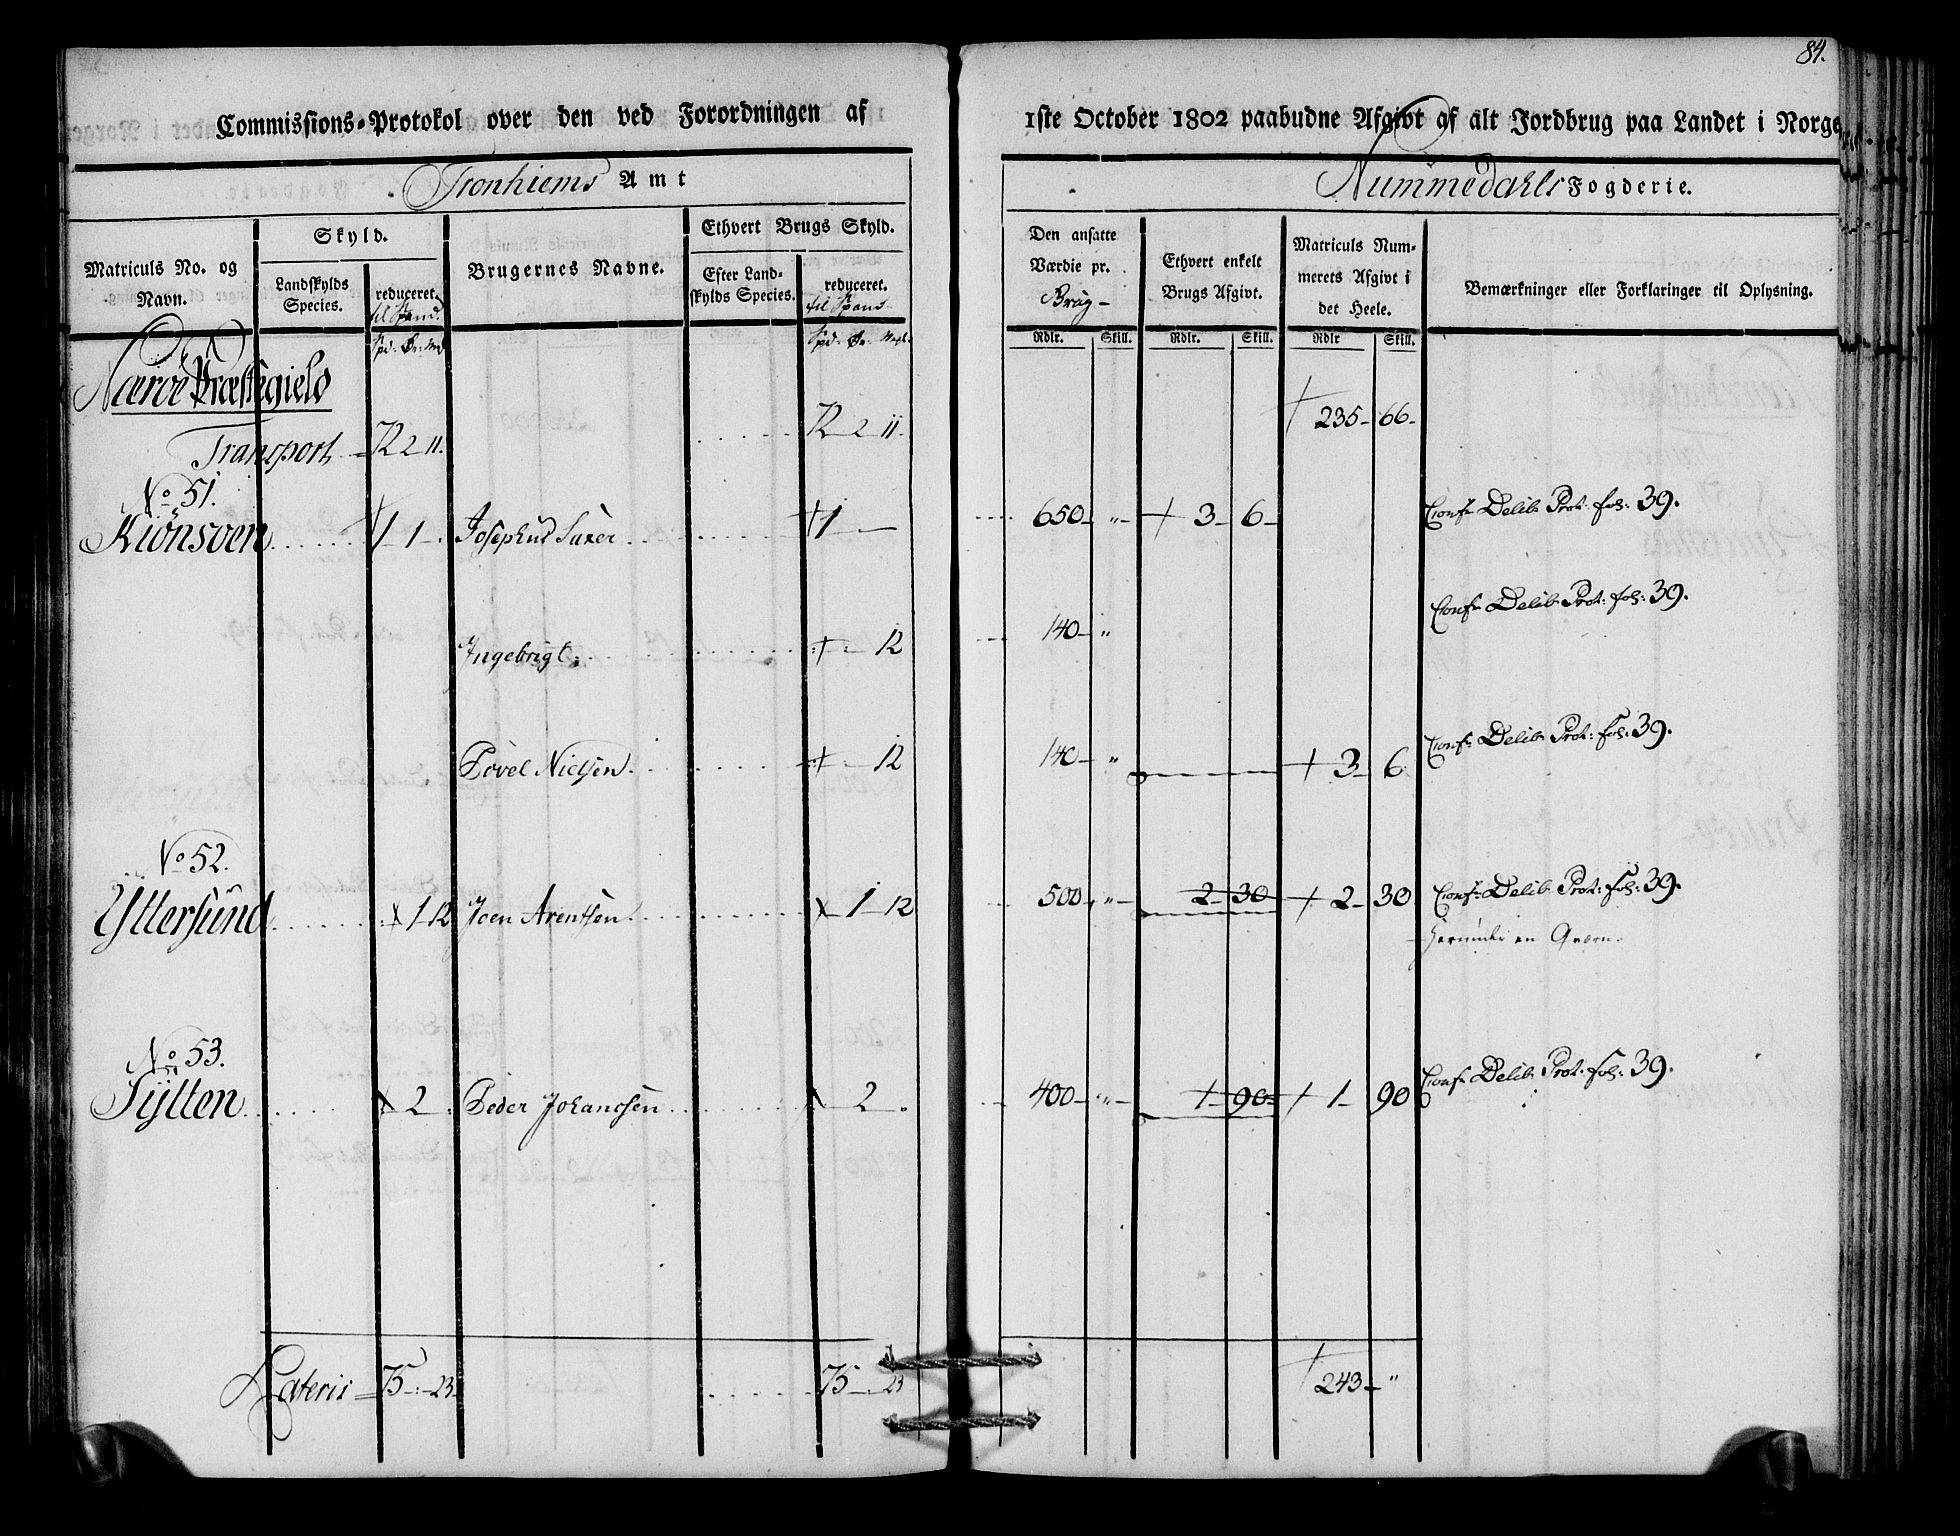 84.
Commissions-Protokol over den ved Forordningen af 1ste October 1802 paabudne Afgivt af alt Jordbrug paa Landet i Norge
Tronhiems Amt
Nummedahls Fogderie.
Matriculs No. og Navn.
Skyld.
Landskylds Species.
reduceret. til Spand.
Brugernes Navne.
Ethvert Brugs Skyld.
Efter Landskylds Species.
reduceret. til Spand
Den ansatte Værdie pr. Brug-
Ethvert enkelt Brugs Afgivt.
Matriculs Nummerets Afgivt i det Heele.
Bemærkninger eller Forklaringer til Oplysning.
Rdlr. Skill. Rdlr. Skill. Rdlr Skill.
Nærøe Præstegield
Transport 72 2 11. 72 2 11. 235 66
No 51.
Kiönsöen 1 1 Josephus Saxer 1 650 " 3 6 Conf. Delib. Prot: fol: 39.
Ingebrigt 12 140 " Conf. Delib. Prot: fol: 39.
Povel Nielsen 12 140 " 3 6 Conf. Delib. Prot: fol: 39.
No 52.
Yttersund 1 12 Joen Arentsen 1 12 500 " 2 30 2 30 Conf. Delib. Prot: fol: 39.
en Qværn.
No 53.
2 Peder Johansen 2 400 " 1 90 1 90 Conf. Delib. Prot: fol: 39.
Lateris 75 23 75 23 243 "